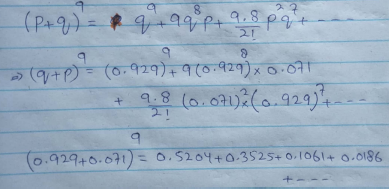 (p+q)⁹ = q⁹ + 9q⁸p + 9.8/2! p²q⁷ + ----
⇒ (q+p)⁹ = (0.929)⁹ + 9(0.929)⁸ × 0.071
+ 9.8/2! (0.071)² × (0.929)⁷ + ---
(0.929+0.071)⁹ = 0.5204 + 0.3525 + 0.1061 + 0.0186
+ ----